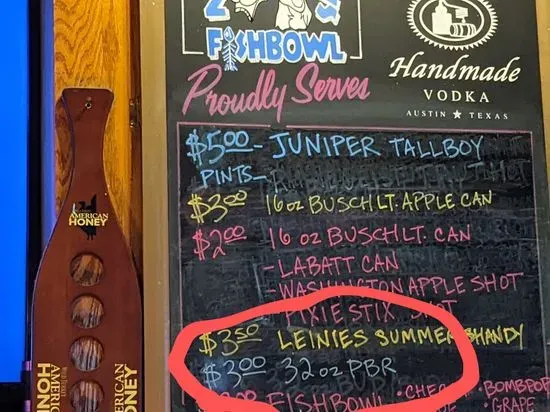 FISHBOWL
Proudly Serves
Handmade
VODKA
AUSTIN ★ TEXAS
$5.00 - JUNIPER TALLBOY
PINTS -
$3.00 16 oz BUSCH LT. APPLE CAN
$2.00 16 oz BUSCH LT. CAN
- LABATT CAN
- WASHINGTON APPLE SHOT
- PIXIE STIX SHOT
$3.50 LEINIES SUMMER SHANDY
$3.00 32 oz PBR
FISHBOWL
• BOMBPOP
• GRAPE
AMERICAN
HONEY
AMERICAN
HONEY